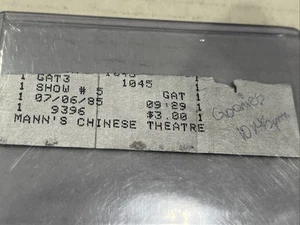 1 GAT3 1045 1
1 SHOW # 5 GAT 1
1 07/06/85 09:29 1
1 9396 $3.00 1
MANN'S CHINESE THEATRE
Goonies
10:45pm